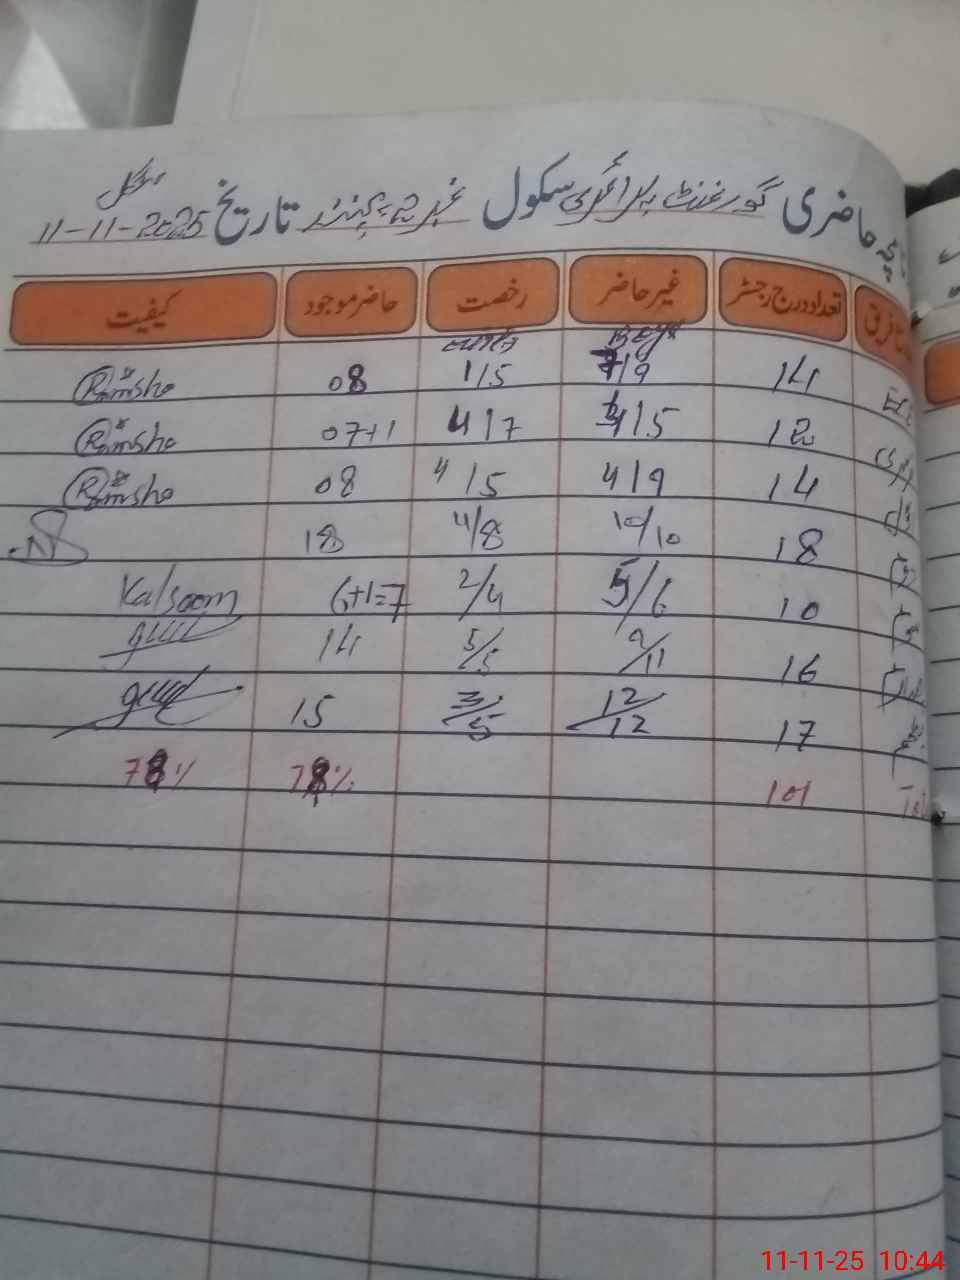 حاضری گورنمنٹ پرائمری سکول نمبر 2 تاریخ منگل 11-11-2025
تعداد درج رجسٹر غیر حاضر رخصت حاضر موجود کیفیت
Boys Girls
14 7/9 1/5 08 Ramsha
12 4/5 4/7 07+1 Ramsha
14 4/9 4/5 08 Ramsha
18 10/10 4/8 18
10 5/6 2/4 6+1=7 Kalsoom
16 9/11 5/5 14
17 12/12 3/5 15
101 78% 78%
11-11-25 10:44